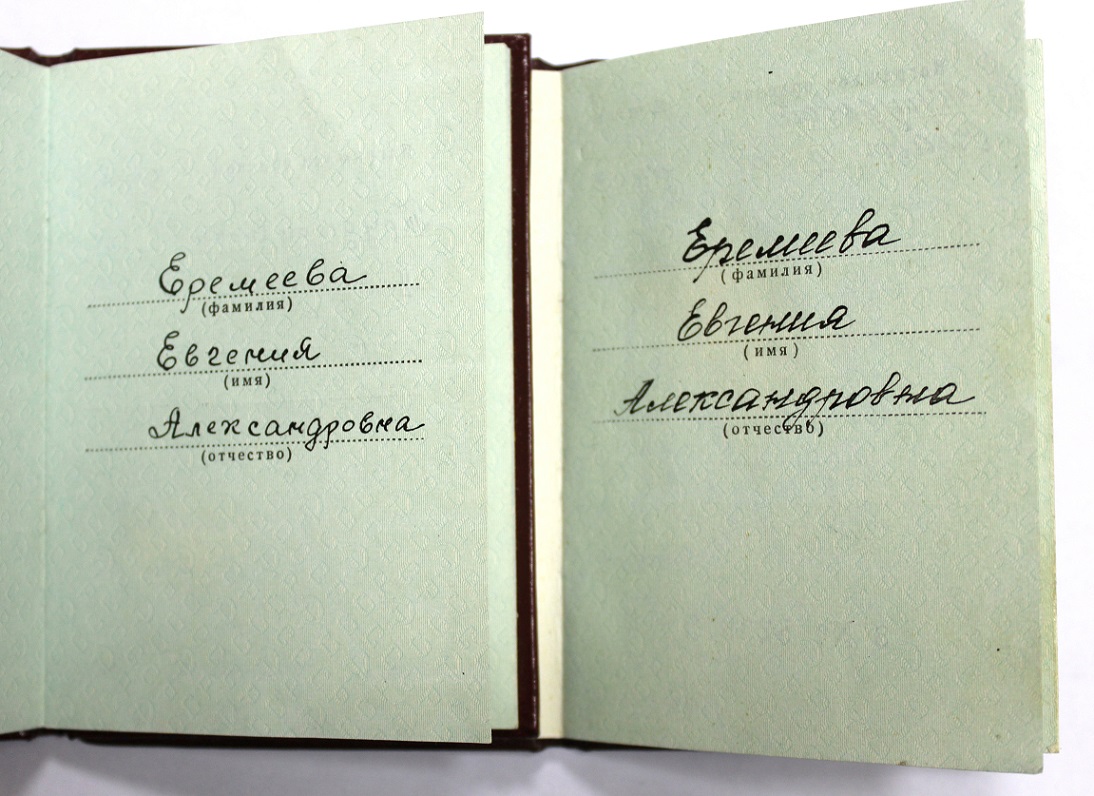 Еремеева
(фамилия)
Евгения
(имя)
Александровна
(отчество)
Еремеева
(фамилия)
Евгения
(имя)
Александровна
(отчество)